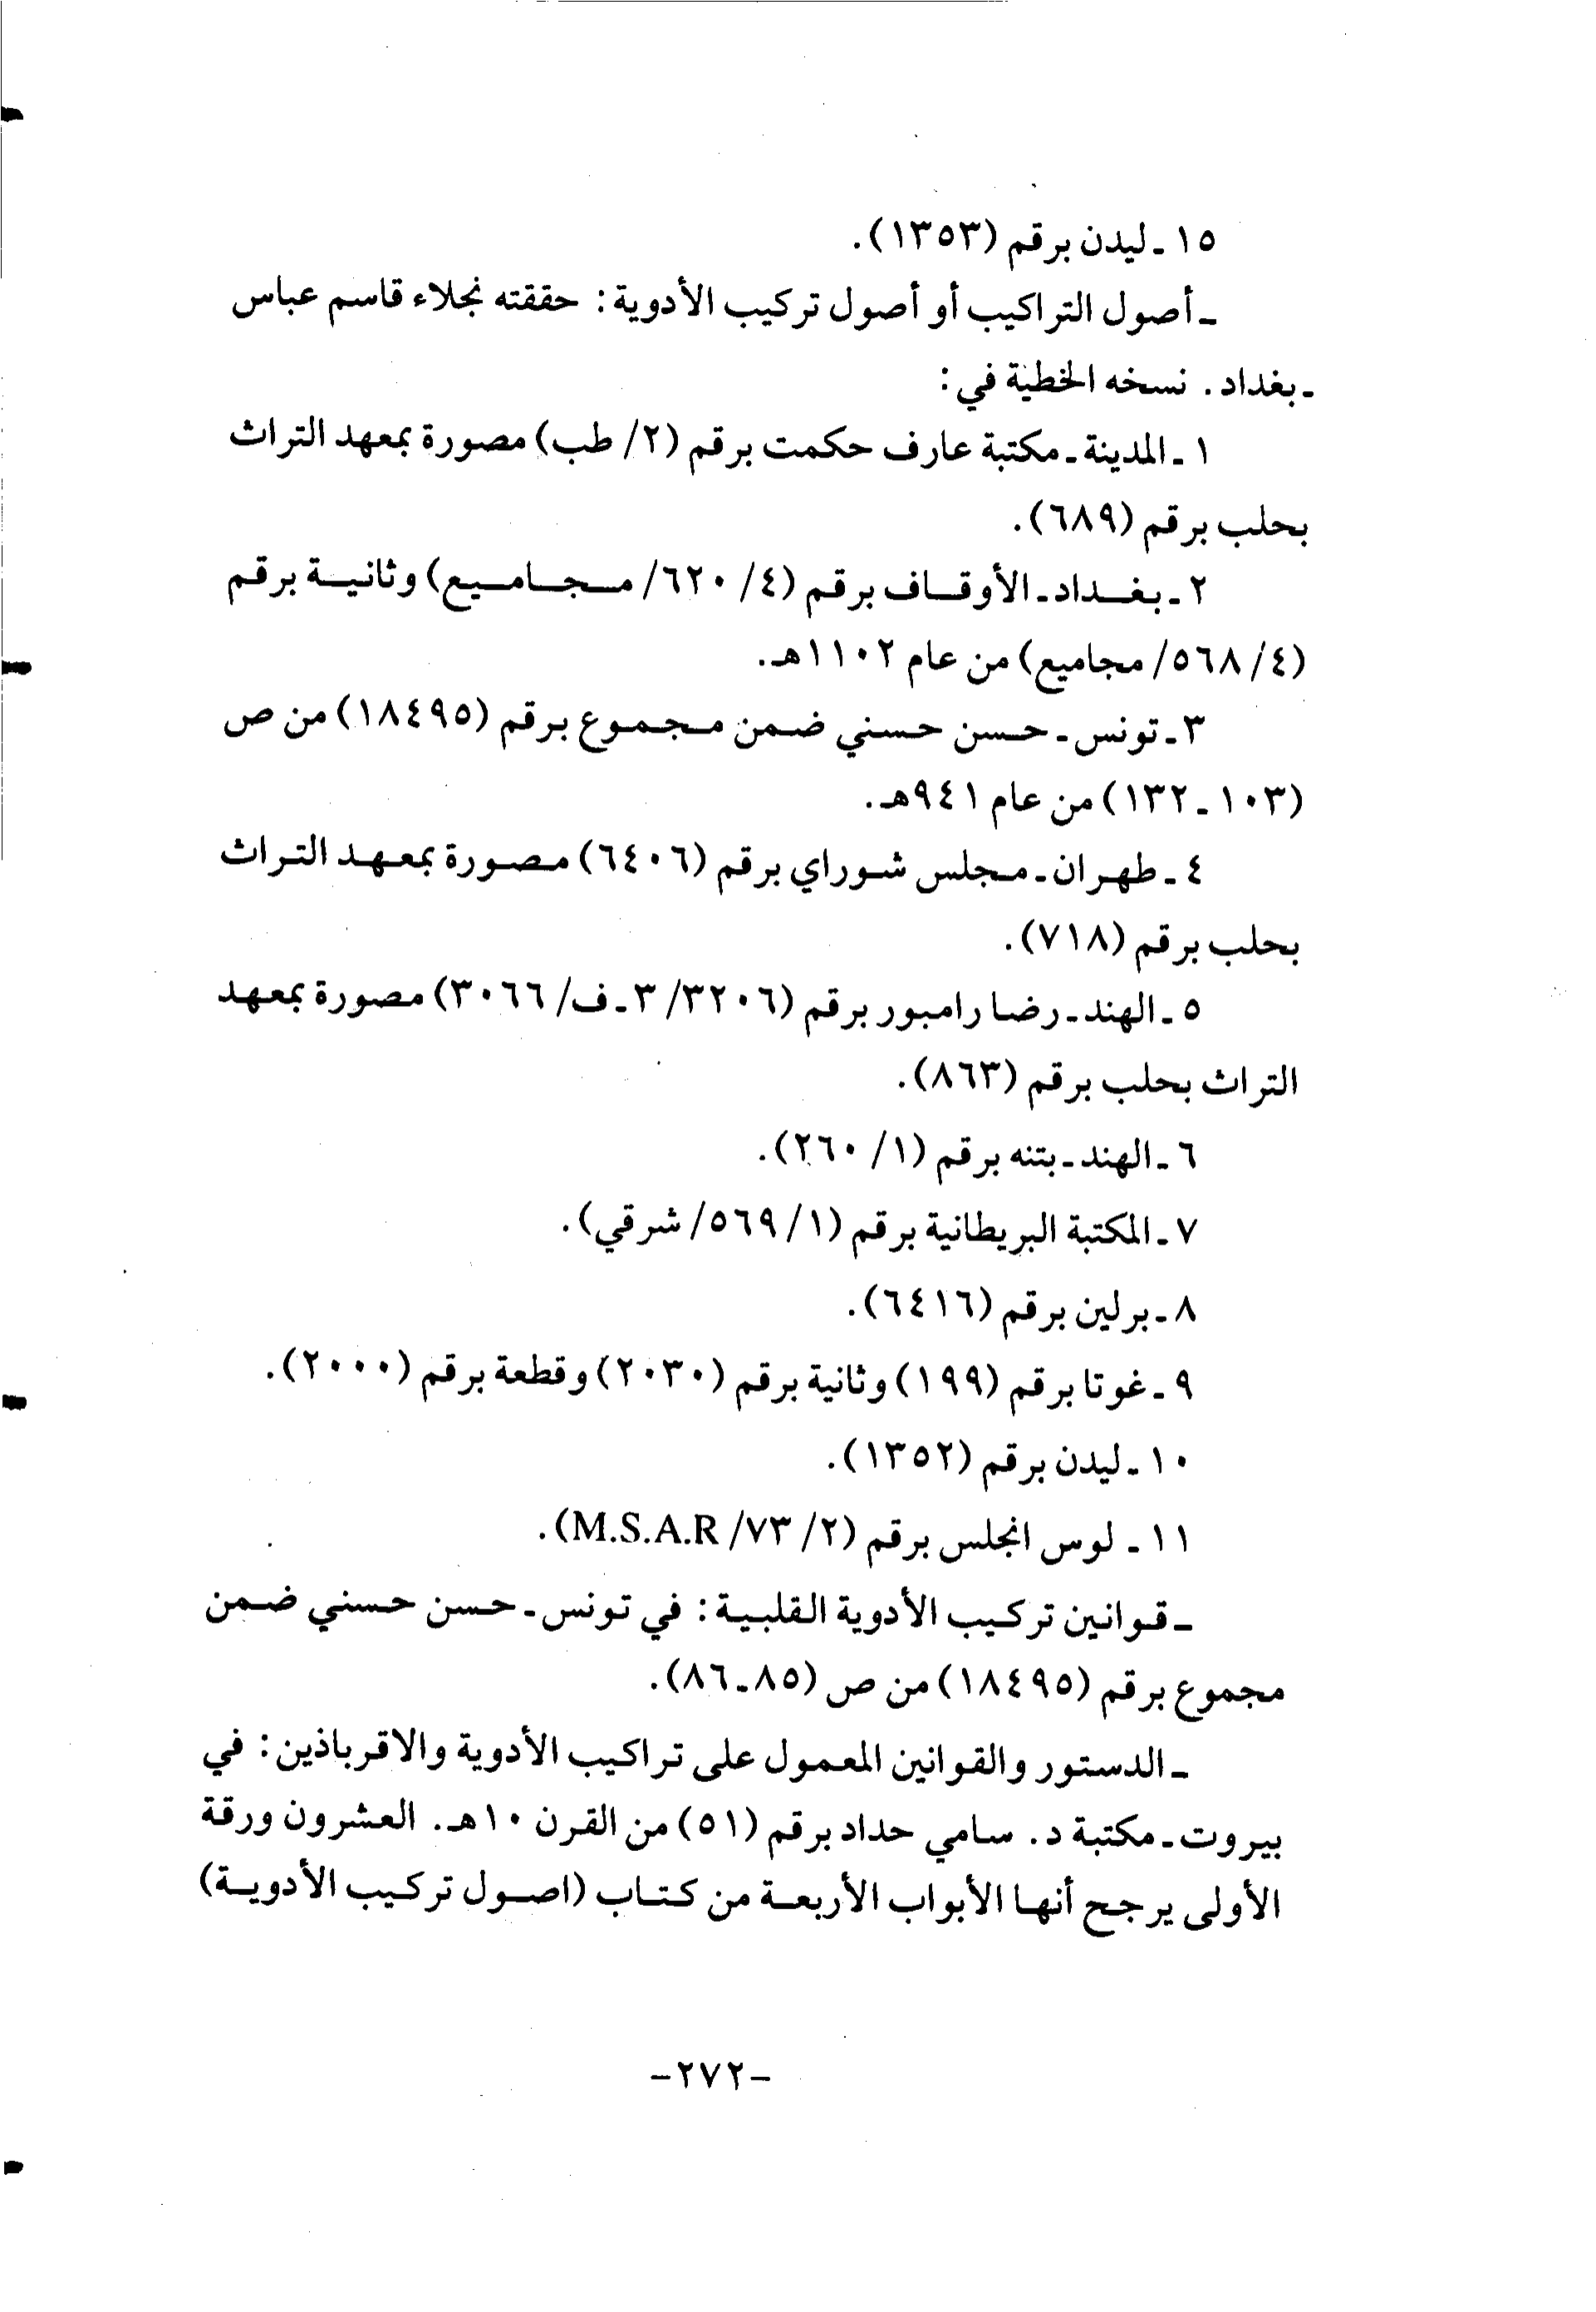 ١٥ ـ ليدن برقم (١٣٥٣).
ـ أصول التراكيب أو أصول تركيب الأدوية: حققته نجلاء قاسم عباس
ـ بغداد. نسخه الخطية في:
١ ـ المدينة ـ مكتبة عارف حكمت برقم (٢/ طب) مصورة بمعهد التراث
بحلب برقم (٦٨٩).
٢ ـ بغداد ـ الأوقاف برقم (٤/ ٦٢٠/ مجاميع) وثانية برقم
(٤/ ٥٦٨/ مجاميع) من عام ١١٠٢هـ.
٣ ـ تونس ـ حسن حسني ضمن مجموع برقم (١٨٤٩٥) من ص
(١٠٣ ـ ١٣٢) من عام ٩٤١هـ.
٤ ـ طهران ـ مجلس شوراي برقم (٦٤٠٦) مصورة بمعهد التراث
بحلب برقم (٧١٨).
٥ ـ الهند ـ رضا رامبور برقم (٣٢٠٦/ ٣ ـ ف/ ٣٠٦٦) مصورة بمعهد
التراث بحلب برقم (٨٦٣).
٦ ـ الهند ـ بتنه برقم (١/ ٢٦٠).
٧ ـ المكتبة البريطانية برقم (١/ ٥٦٩/ شرقي).
٨ ـ برلين برقم (٦٤١٦).
٩ ـ غوتا برقم (١٩٩) وثانية برقم (٢٠٣٠) وقطعة برقم (٢٠٠٠).
١٠ ـ ليدن برقم (١٣٥٢).
١١ ـ لوس انجلس برقم (٢/ ٧٣/ M.S.A.R).
ـ قوانين تركيب الأدوية القلبية: في تونس ـ حسن حسني ضمن
مجموع برقم (١٨٤٩٥) من ص (٨٥ ـ ٨٦).
ـ الدستور والقوانين المعمول على تراكيب الأدوية والاقرباذين: في
بيروت ـ مكتبة د. سامي حداد برقم (٥١) من القرن ١٠هـ. العشرون ورقة
الأولى يرجح أنها الأبواب الأربعة من كتاب (اصول تركيب الأدوية)
-٢٧٢-